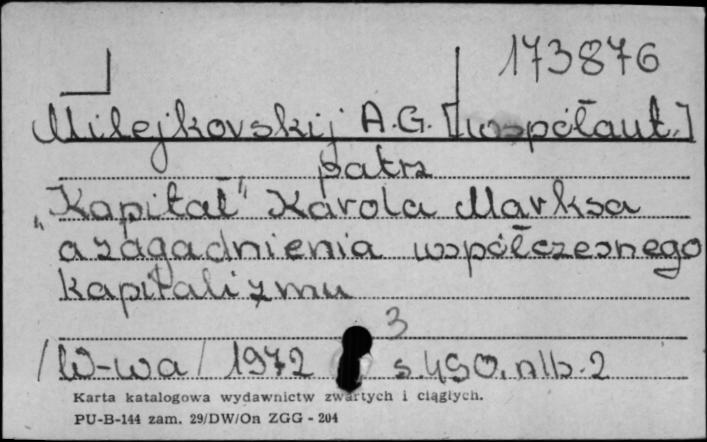 173876
Milejkovskij A.G. [współaut.]
patrz
„Kapitał" Karola Marksa
a zagadnienia współczesnego
kapitalizmu
3
/W-wa/ 1972 s. 490, nlb. 2
Karta katalogowa wydawnictw zwartych i ciągłych.
PU-B-144 zam. 29/DW/On ZGG - 204